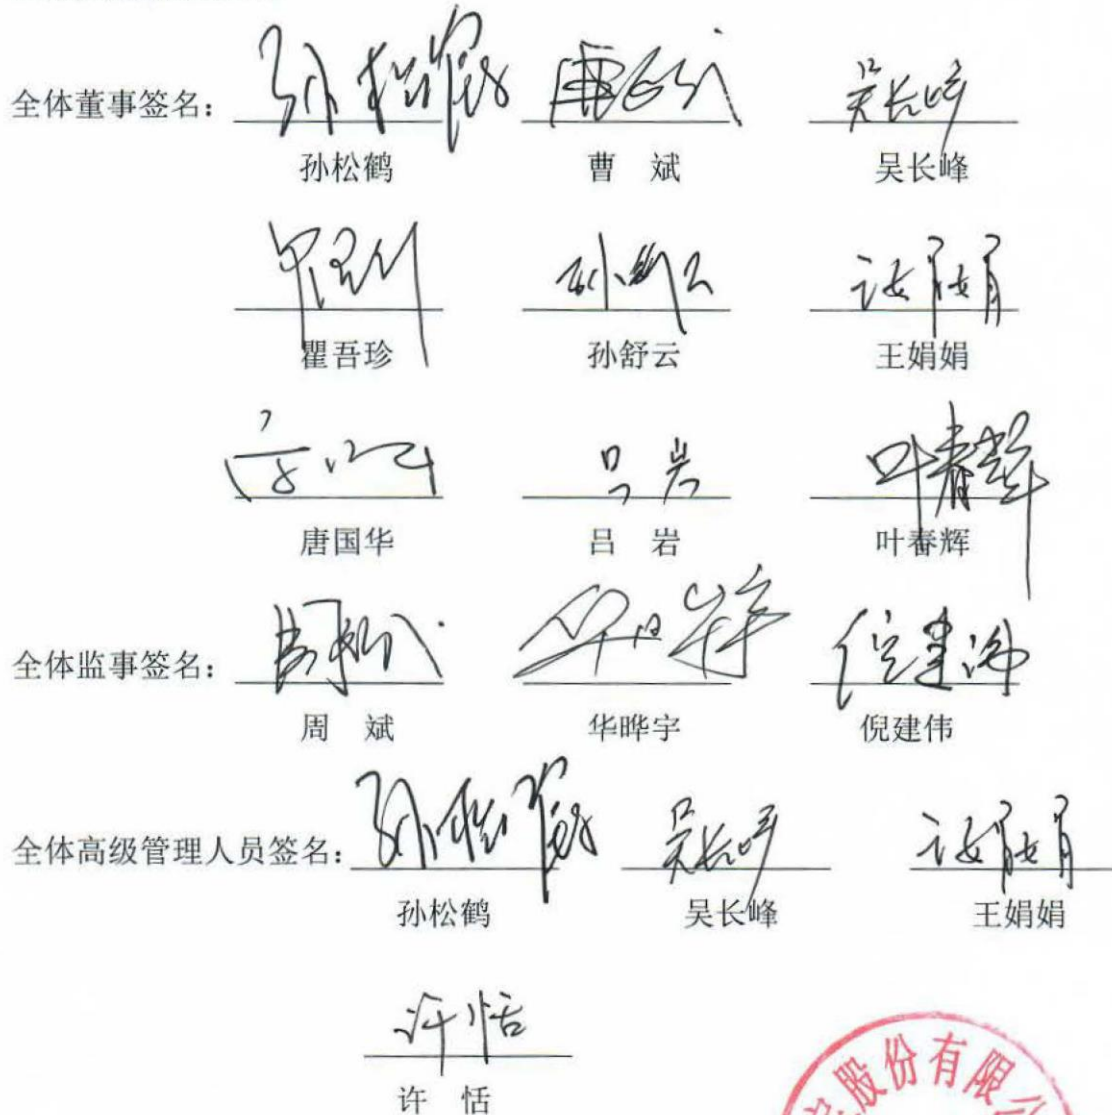 全体董事签名:
孙松鹤 曹 斌 吴长峰
瞿吾珍 孙舒云 王娟娟
唐国华 吕 岩 叶春辉
全体监事签名:
周 斌 华晔宇 倪建伟
全体高级管理人员签名:
孙松鹤 吴长峰 王娟娟
许 恬
股份有限公